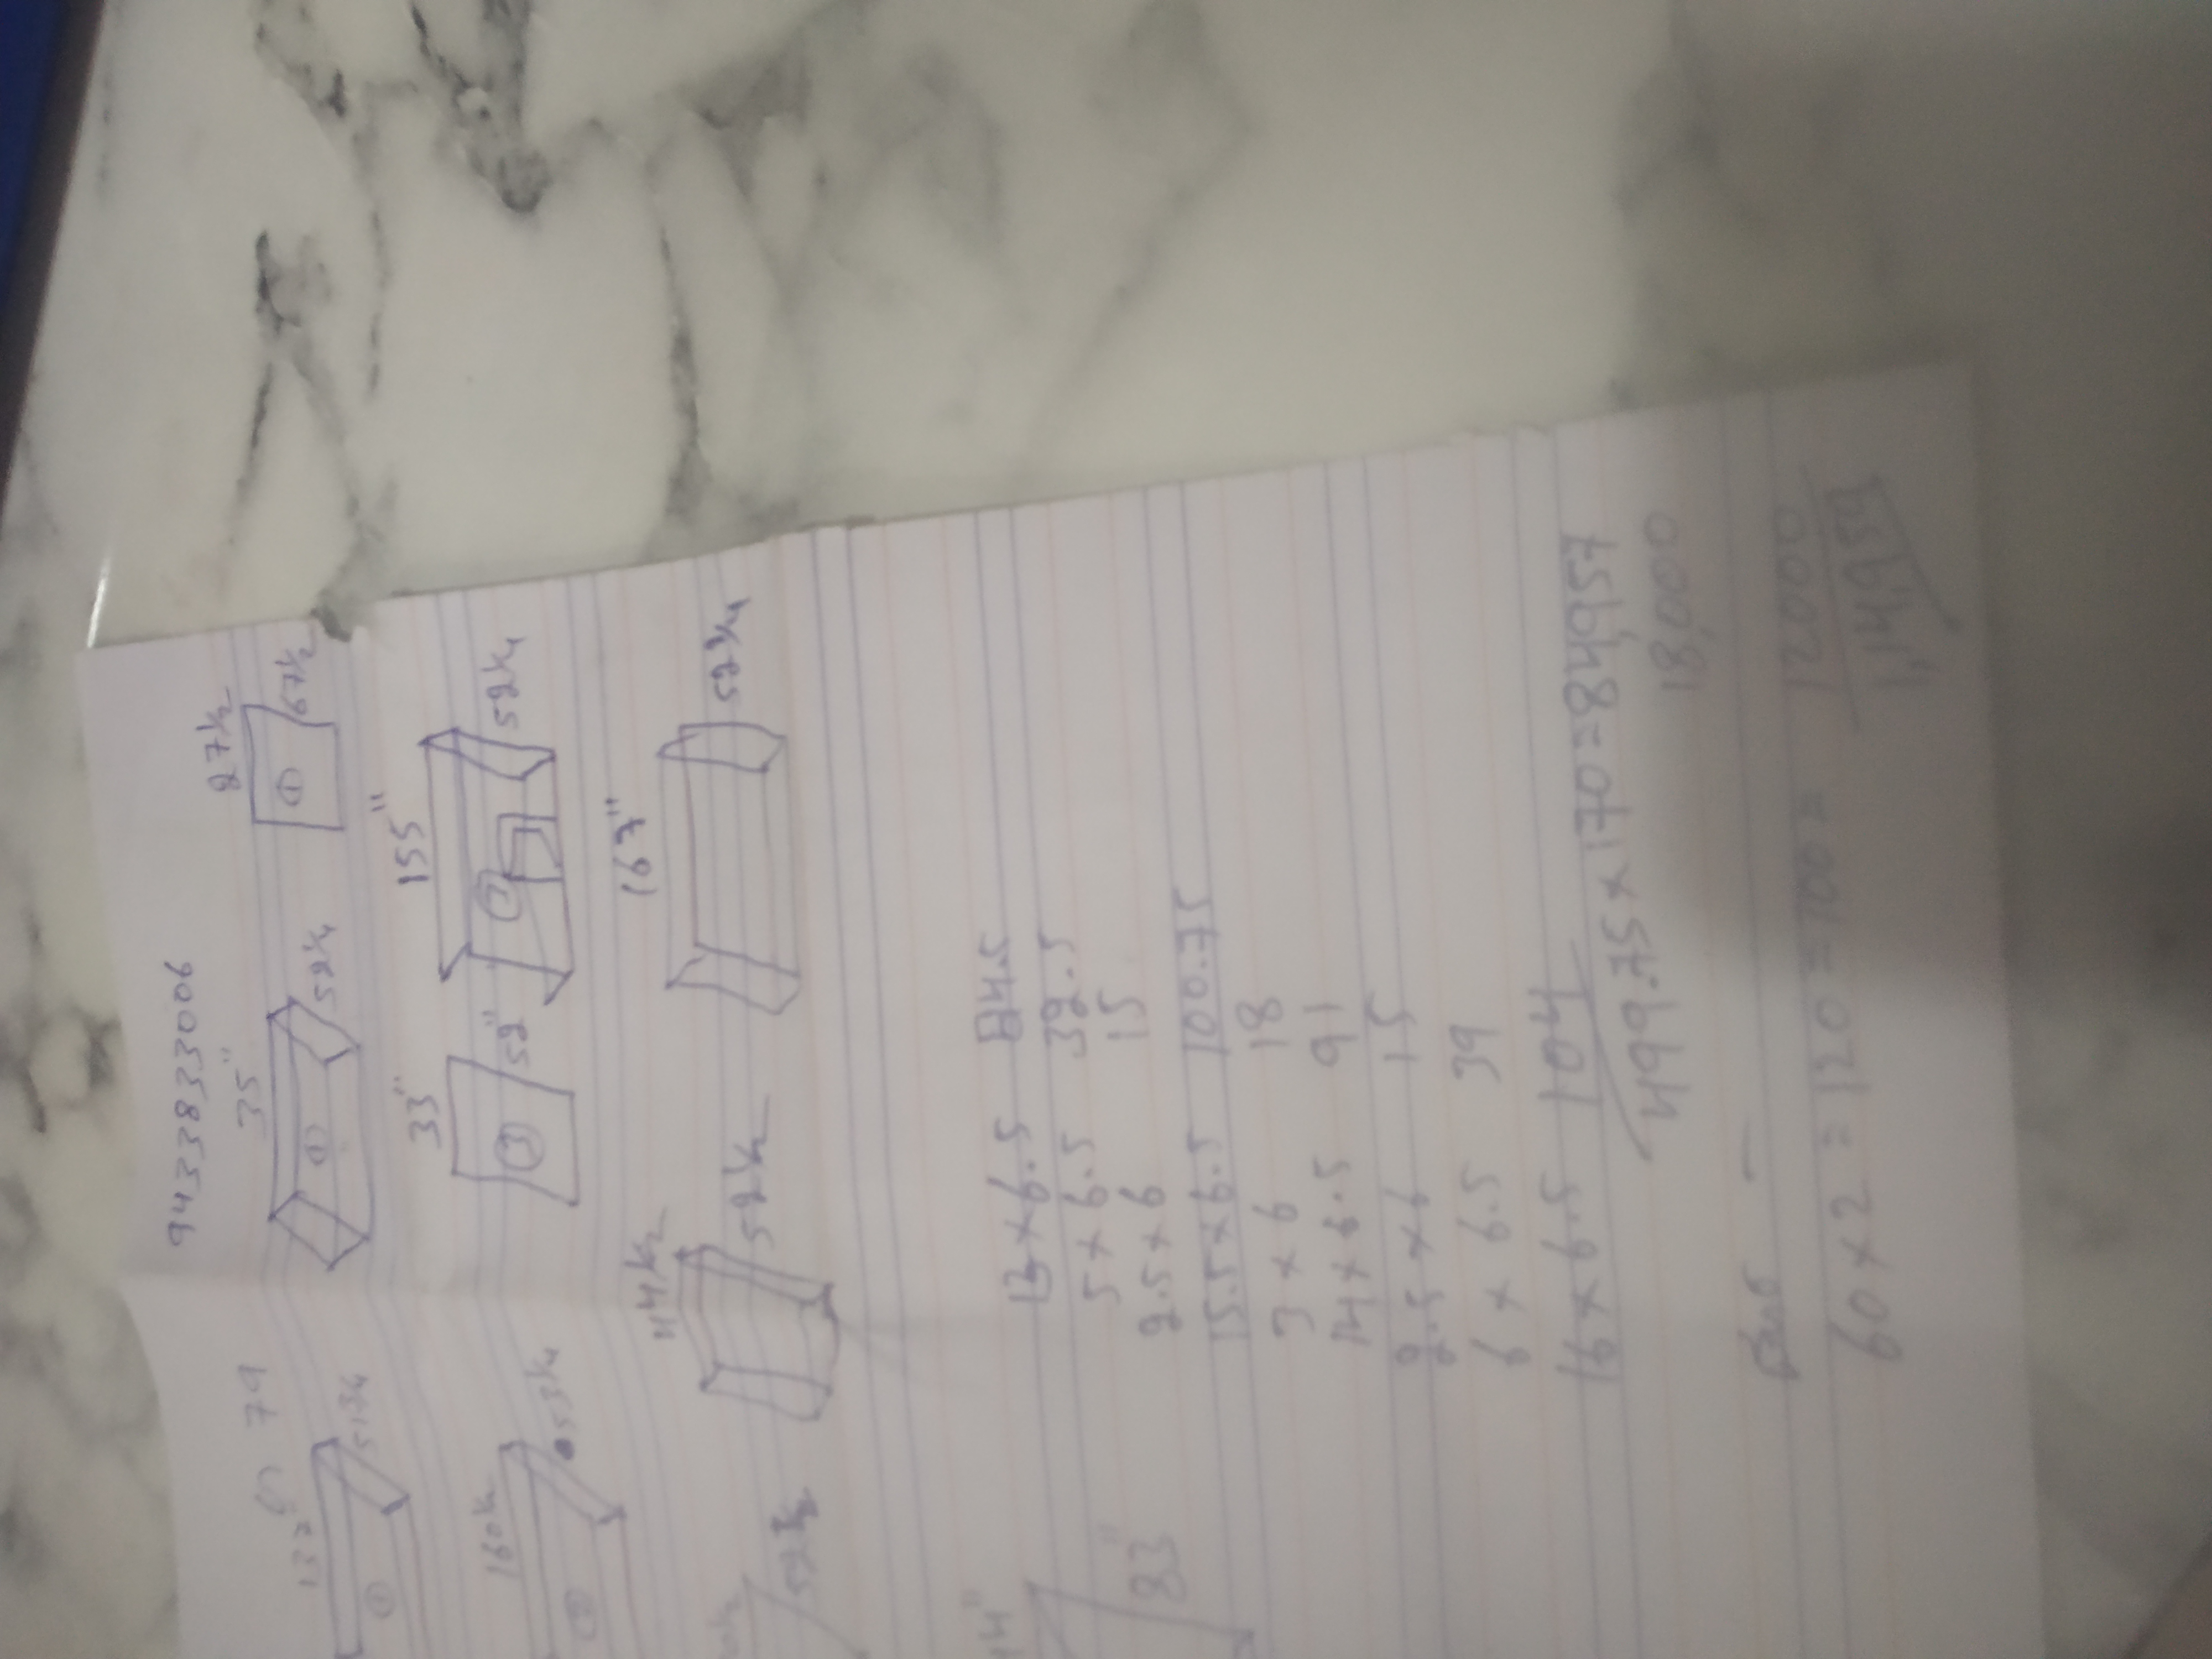 9433833006
79
35"
27½
132"
①
52¼
①
67½
①
51¾
33"
155"
③
52"
52¼
160½
53¼
44½
167"
52½
52¾
13 × 6.5 84.5
5 × 6.5 32.5
2.5 × 6 15
83"
15.5 × 6.5 100.75
3 × 6 18
14 × 6.5 91
2.5 × 6 15
6 × 6.5 39
16 × 6.5 104
499.75 × 170 = 84,957
18,000
60 × 2 = 120 = 100 = 12000
1,14,959